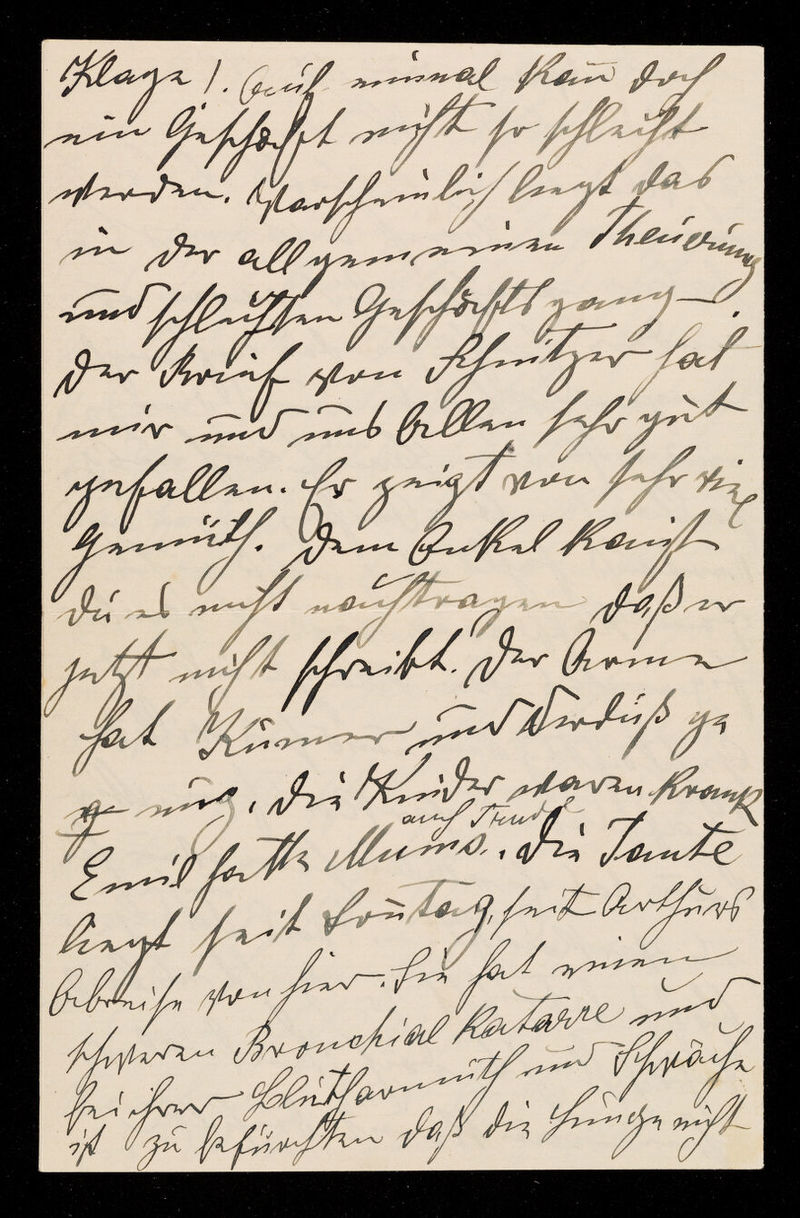 Klage!. Auf einmal kan̄ doch
ein Geschäft nicht so schlecht
werden. Warscheinlich liegt das
in der allgemeinen Theuerung
und schlechten Geschäftsgang.
Der Brief von Schnitzer hat
mir und uns Allen sehr gut
gefallen. Er zeigt von sehr viel
Gemüth. Dem Onkel kan̄st
du es nicht nachtragen daß er
jetzt nicht schreibt. Der Arme
hat Kum̄er und Verduß ge
nug. Die Kinder waren krank
auch Trude
Emil hatte Mums. Die Tante
liegt seit Son̄tag, seit Arthurs
Abreise von hier. Sie hat einen
schweren Bronchial Katarre und
bei ihrer Blutharmuth und Schwäche
ist zu befürchten daß die Lunge nicht